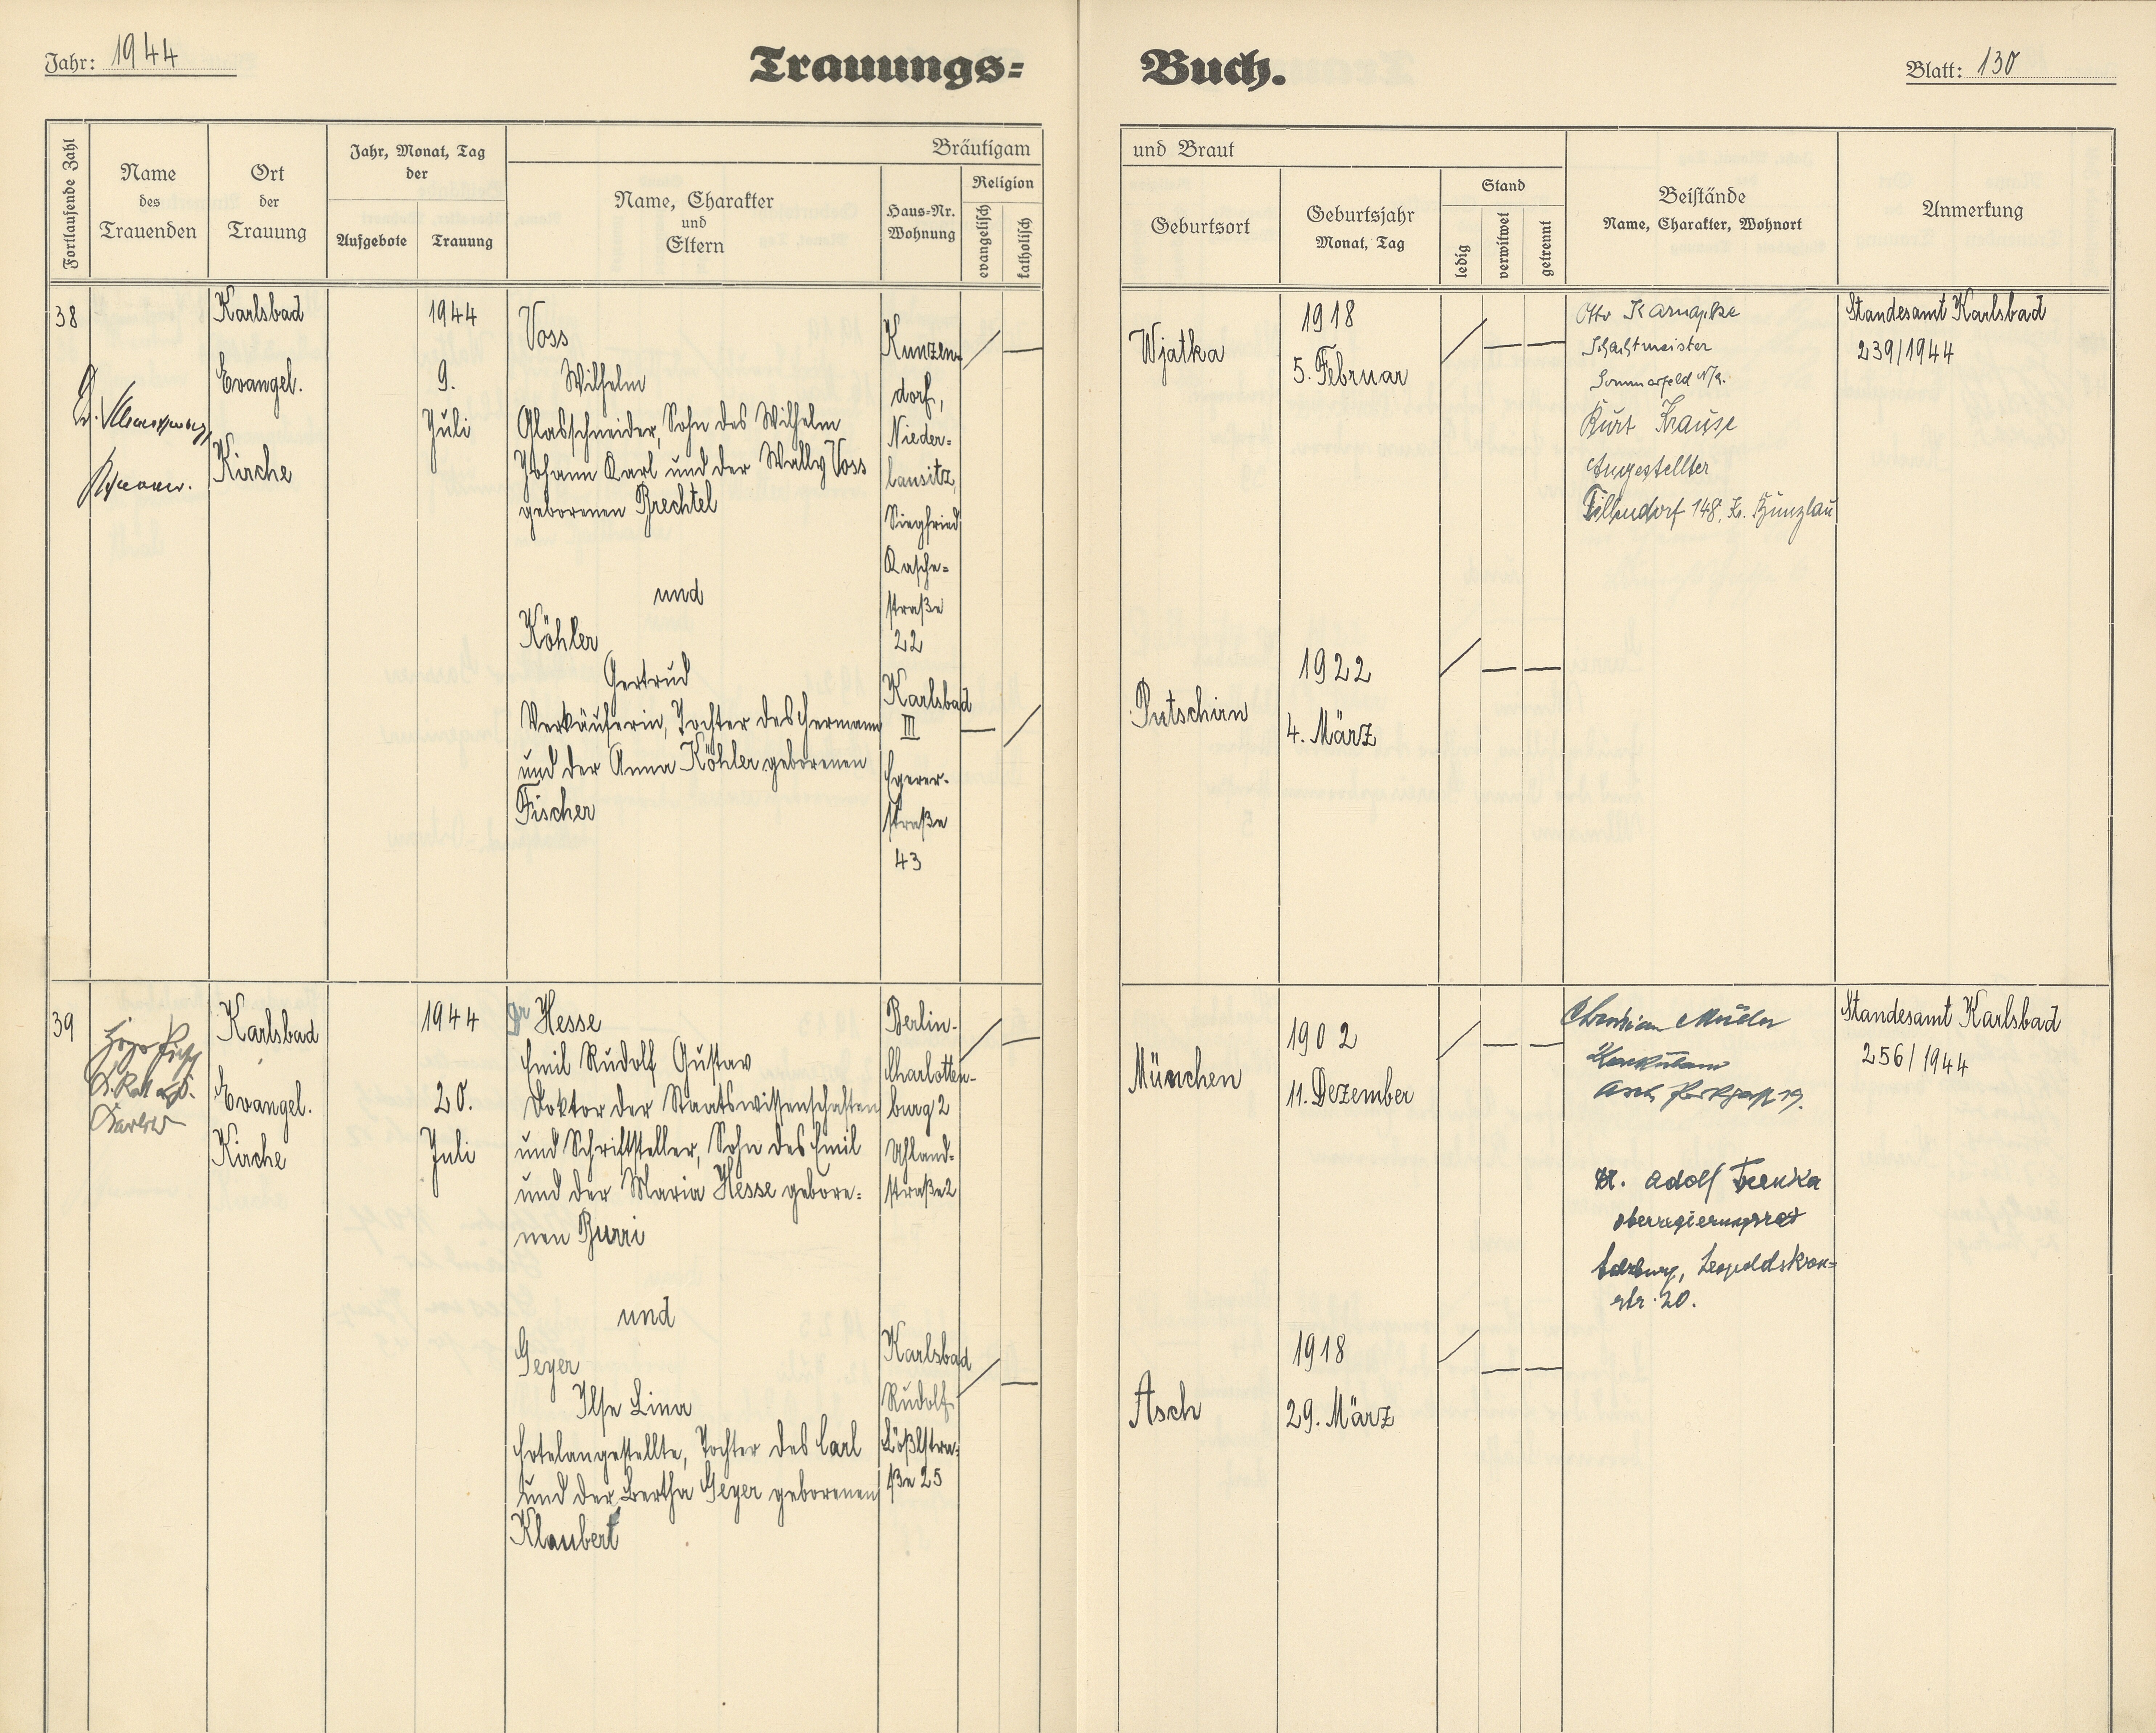 Jahr: 1944
Trauungs=
Buch.
Blatt: 130
Fortlaufende Zahl
Name
des
Trauenden
Ort
der
Trauung
Jahr, Monat, Tag
der
Aufgebote
Trauung
Bräutigam
Name, Charakter
und
Eltern
Haus=Nr.
Wohnung
Religion
evangelisch
katholisch
und Braut
Geburtsort
Geburtsjahr
Monat, Tag
Stand
ledig
verwitwet
getrennt
Beistände
Name, Charakter, Wohnort
Anmerkung
38
Karlsbad
Evangel.
Kirche
1944
9.
Juli
Voss
Wilhelm
Glasschneider, Sohn des Wilhelm
Johann Karl und der Wally Voss
geborenen Brechtel
und
Köhler
Gertrud
Verkäuferin, Tochter des Hermann
und der Anna Köhler geborenen
Fischer
Kunzen-
dorf,
Nieder=
lausitz,
Siegfried
Kasche=
straße
22
Karlsbad
III
Egerer-
straße
43
Wjatka
1918
5. Februar
Putschirn
1922
4. März
Otto
Schachtmeister
Sommerfeld N/L.
Kurt Krause
Angestellter
Tillendorf 148, Kr. Bunzlau
Standesamt Karlsbad
239/1944
39
Karlsbad
Evangel.
Kirche
1944
20.
Juli
Dr Hesse
Emil Rudolf Gustav
Doktor der Staatswissenschaften
und Schriftsteller, Sohn des Emil
und der Maria Hesse gebore=
nen Burri
und
Geyer
Ilse Lina
Hotelangestellte, Tochter des Carl
und der Bertha Geyer geborenen
Klaubert
Berlin-
Charlotten-
burg 2
Uhland=
straße 2
Karlsbad
Rudolf
Lößlstra=
ße 25
München
1902
11. Dezember
Asch
1918
29. März
Christian
Asch 19.
Dr. Adolf
Oberregierungsrat
Salzburg, Leopoldskron=
str. 20.
Standesamt Karlsbad
256/1944